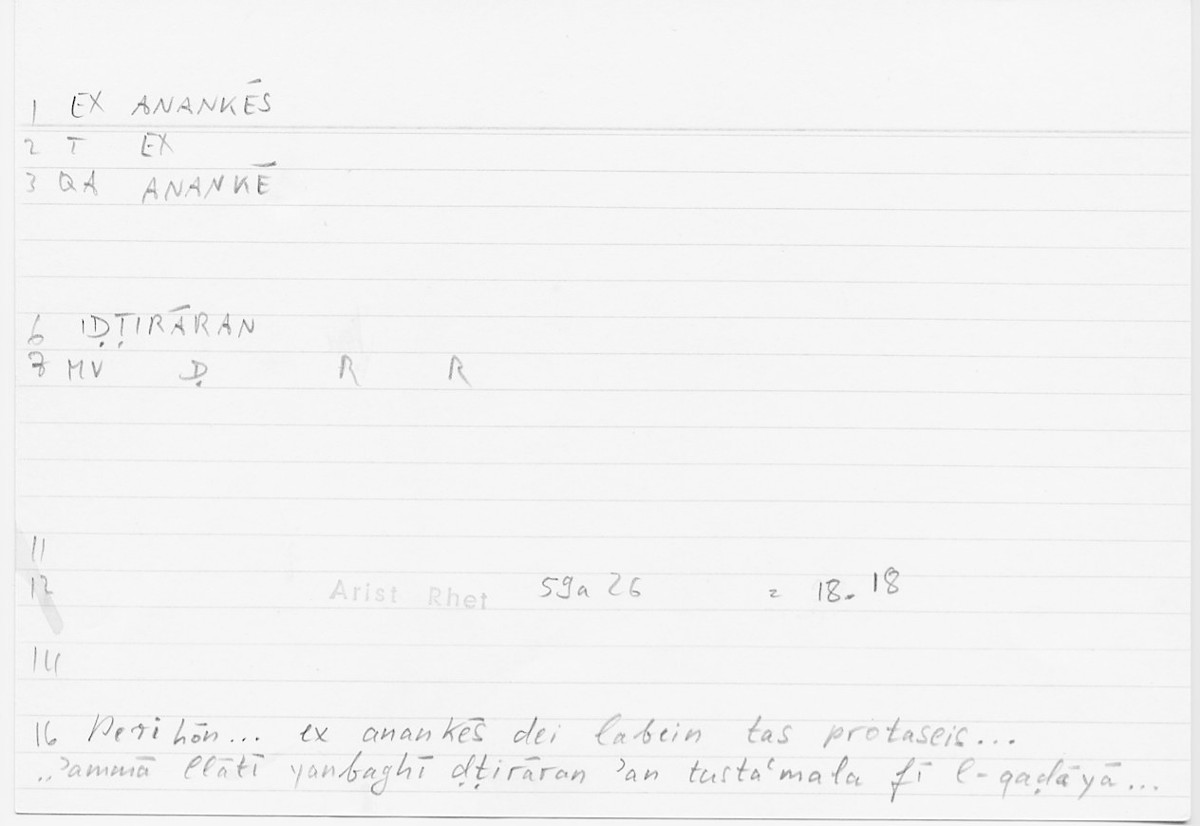 1 EX ANANKĒS
2 T EX
3 QA ANANKĒ
6 IḌṬIRĀRAN
7 MV Ḍ R R
11
12 Arist Rhet 59a 26 = 18.18
14
16 Peri hōn... ex anankēs dei labein tas protaseis...
,,ʾammā llātī yanbaghī ḍṭirāran ʾan tustaʿmala fī l-qaḍāyā...